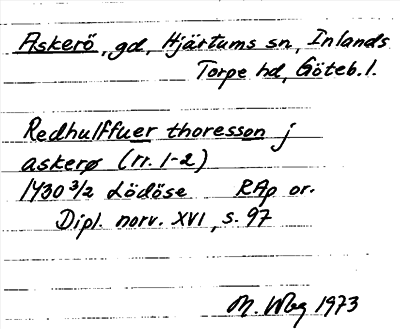 Askerö, gd, Hjärtums sn, Inlands
Torpe hd, Göteb. l.
Redhulffuer thoresson j
askerø (rr. 1-2)
1430 3/2 Lödöse RAp or.
Dipl. norv. XVI, s. 97
M. 1973